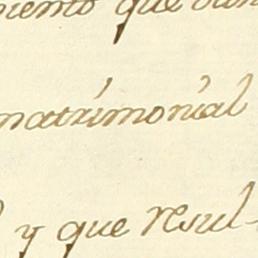 miento que
matrimonial
y que resul-